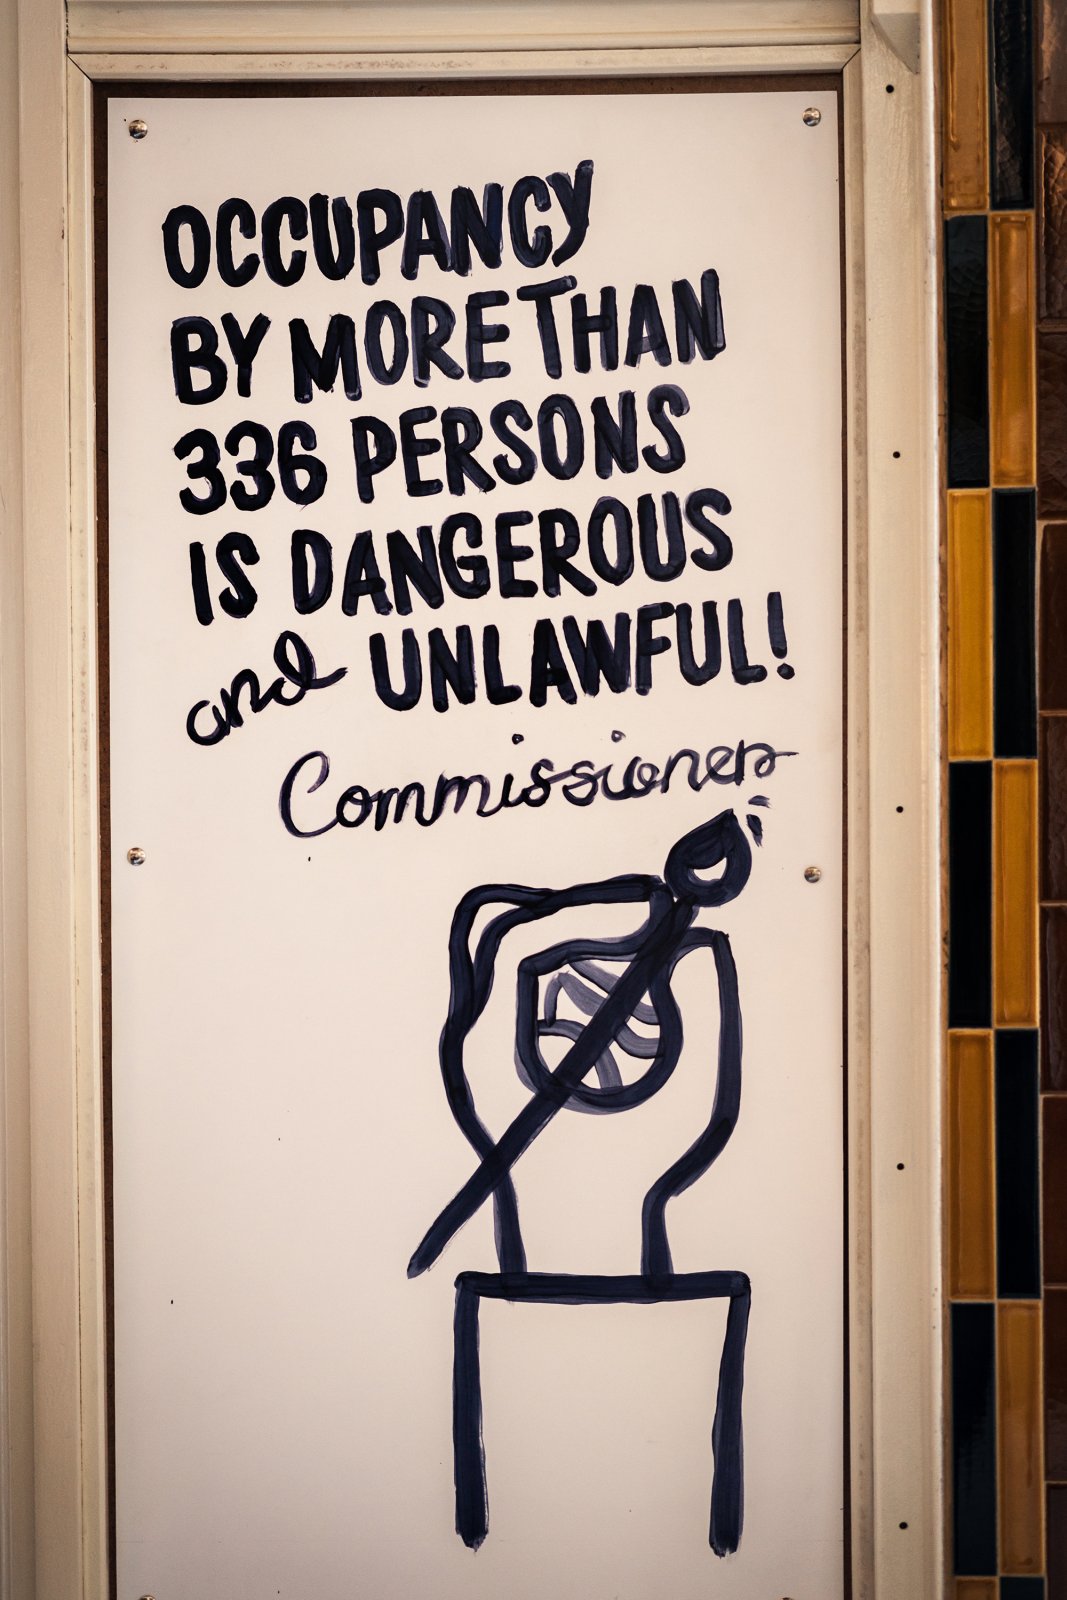 OCCUPANCY
BY MORE THAN
336 PERSONS
IS DANGEROUS
and UNLAWFUL!
Commissioner